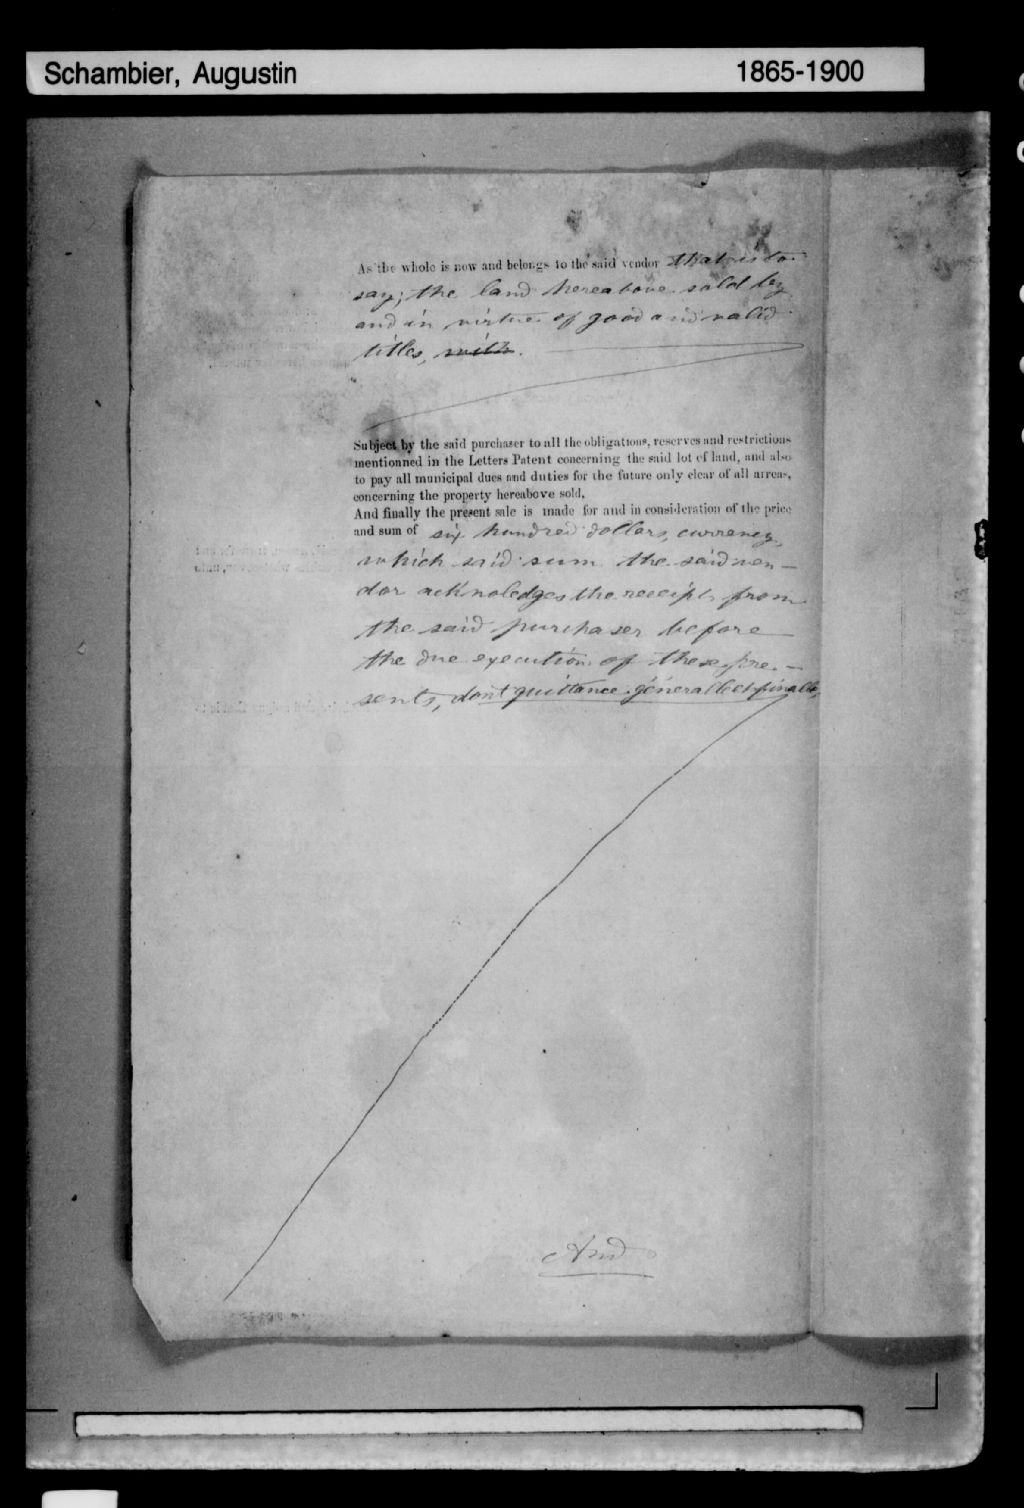 Schambier, Augustin 1865-1900
As the whole is now and belongs to the said vendor that is to
say; the land hereabove sold by
and in virtue of good and valid
titles, with.
Subject by the said purchaser to all the obligations, reserves and restrictions
mentionned in the Letters Patent concerning the said lot of land, and also
to pay all municipal dues and duties for the future only clear of all arreas,
concerning the property hereabove sold.
And finally the present sale is made for and in consideration of the price
and sum of six hundred dollars, currency,
which said sum the said ven-
dor acknoledges the receipt from
the said purchaser before
the due execution of these pre-
sents, dont quittance générale et finale,
And